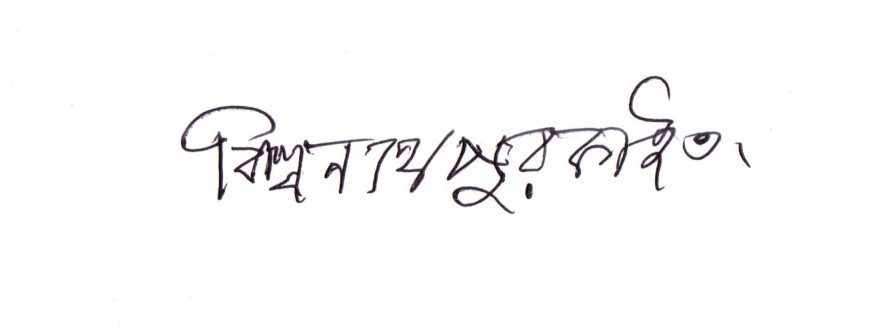 বিশ্বনাথ পুরকাইত